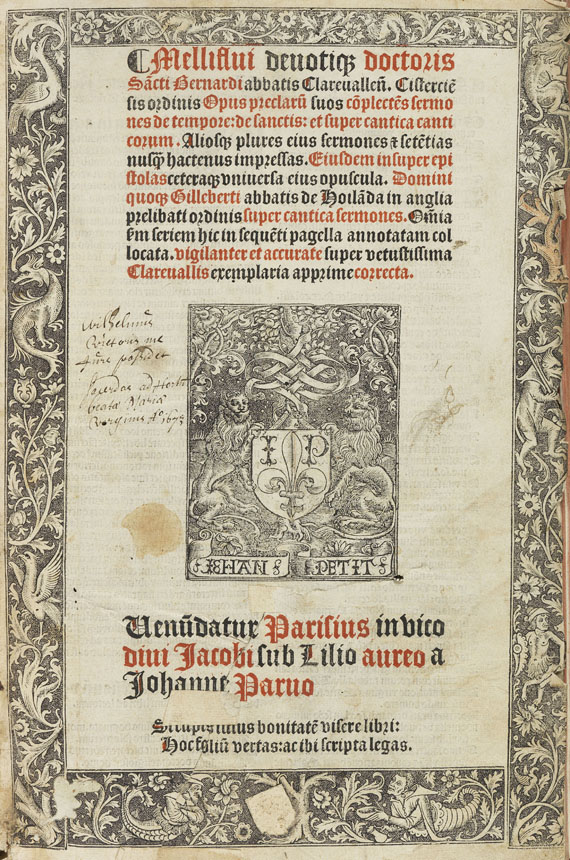 ¶ Melliflui deuotiqꝫ doctoris
Sācti Bernardi abbatis Clareualleñ. Cisterciē
sis ordinis Opus preclarū suos cōplectēs sermo
nes de tempore: de sanctis: et super cantica canti
corum. Aliosqꝫ plures eius sermones ꝛ setētias
nusqꝫ hactenus impressas. Eiusdem insuper epi
stolas ceteraqꝫ vniuersa eius opuscula. Domini
quoqꝫ Gilleberti abbatis de Hoilāda in anglia
prelibati ordinis super cantica sermones. Oīa
ẽm seriem hic in sequēti pagella annotatam col
locata. vigilanter et accurate super vetustissima
Clareuallis exemplaria apprime correcta.
Wilhelmus
me
possidet
Sacerdos ad
beata Maria
I P
IEHANS PETIT
Uenūdatur Parisius in vico
diui Jacobi sub Lilio aureo a
Johanne Paruo
bonitatē visere libri:
Hoc foliū vertas: ac ibi scripta legas.